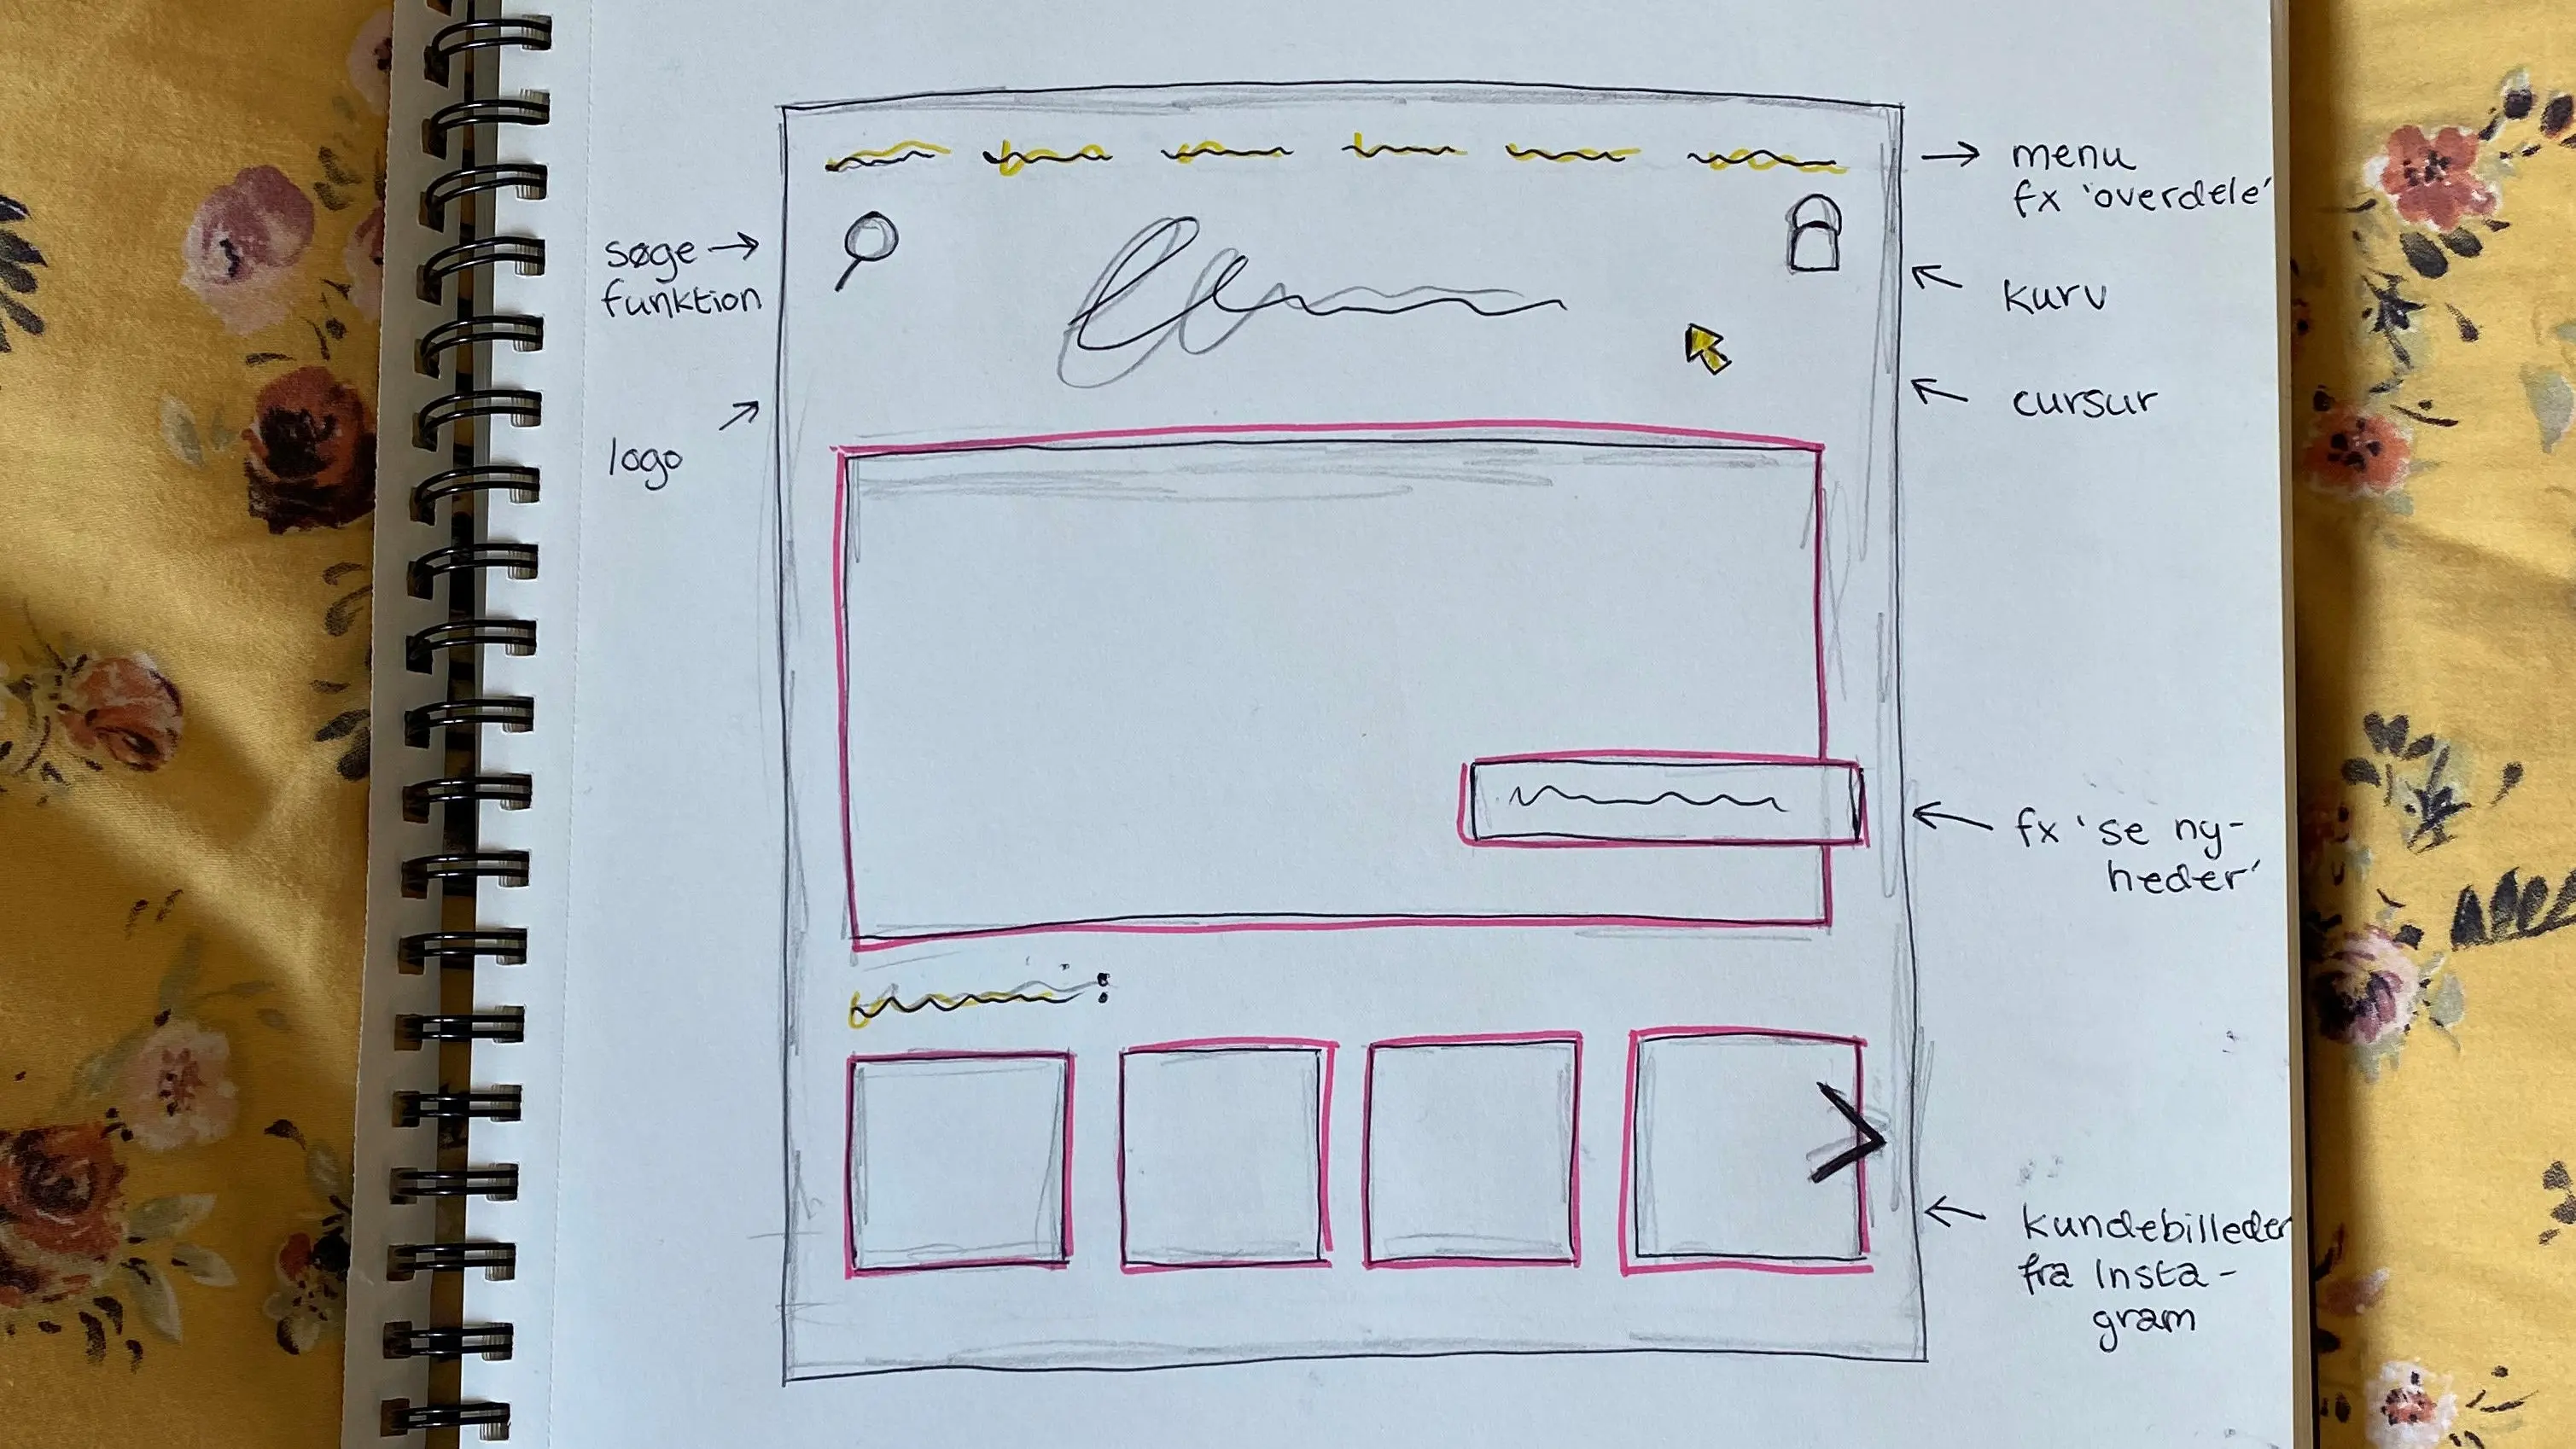 menu
fx 'overdele'
søge
funktion
kurv
cursur
logo
fx 'se ny-
heder'
kundebilleder
fra Insta-
gram